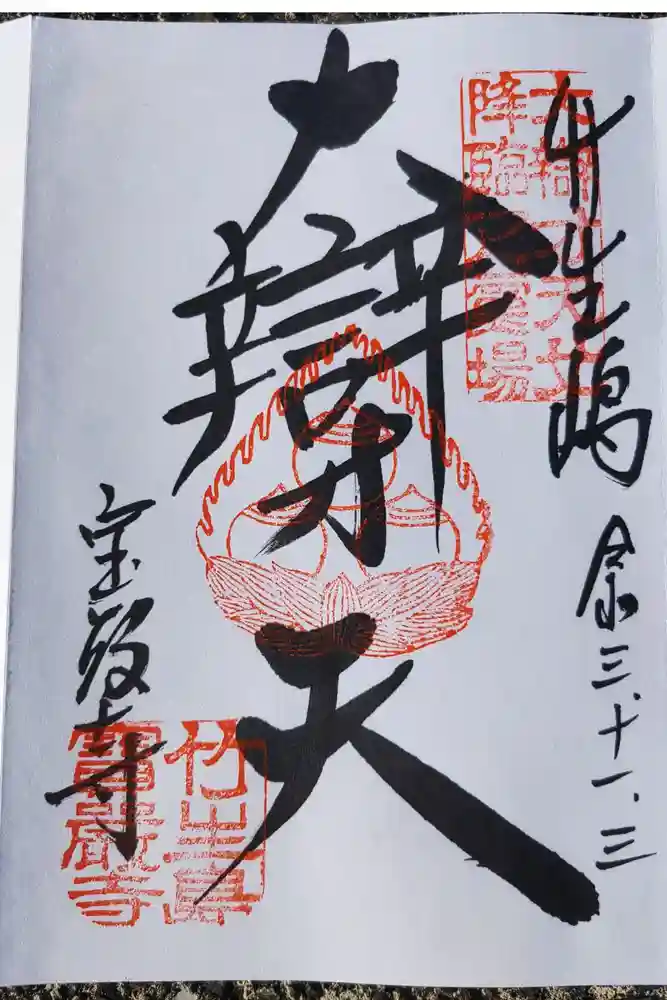 竹生嶋
令三.十一.三
大辯才天
宝厳寺
大辨才天女
降臨霊場
竹生島
寶嚴寺